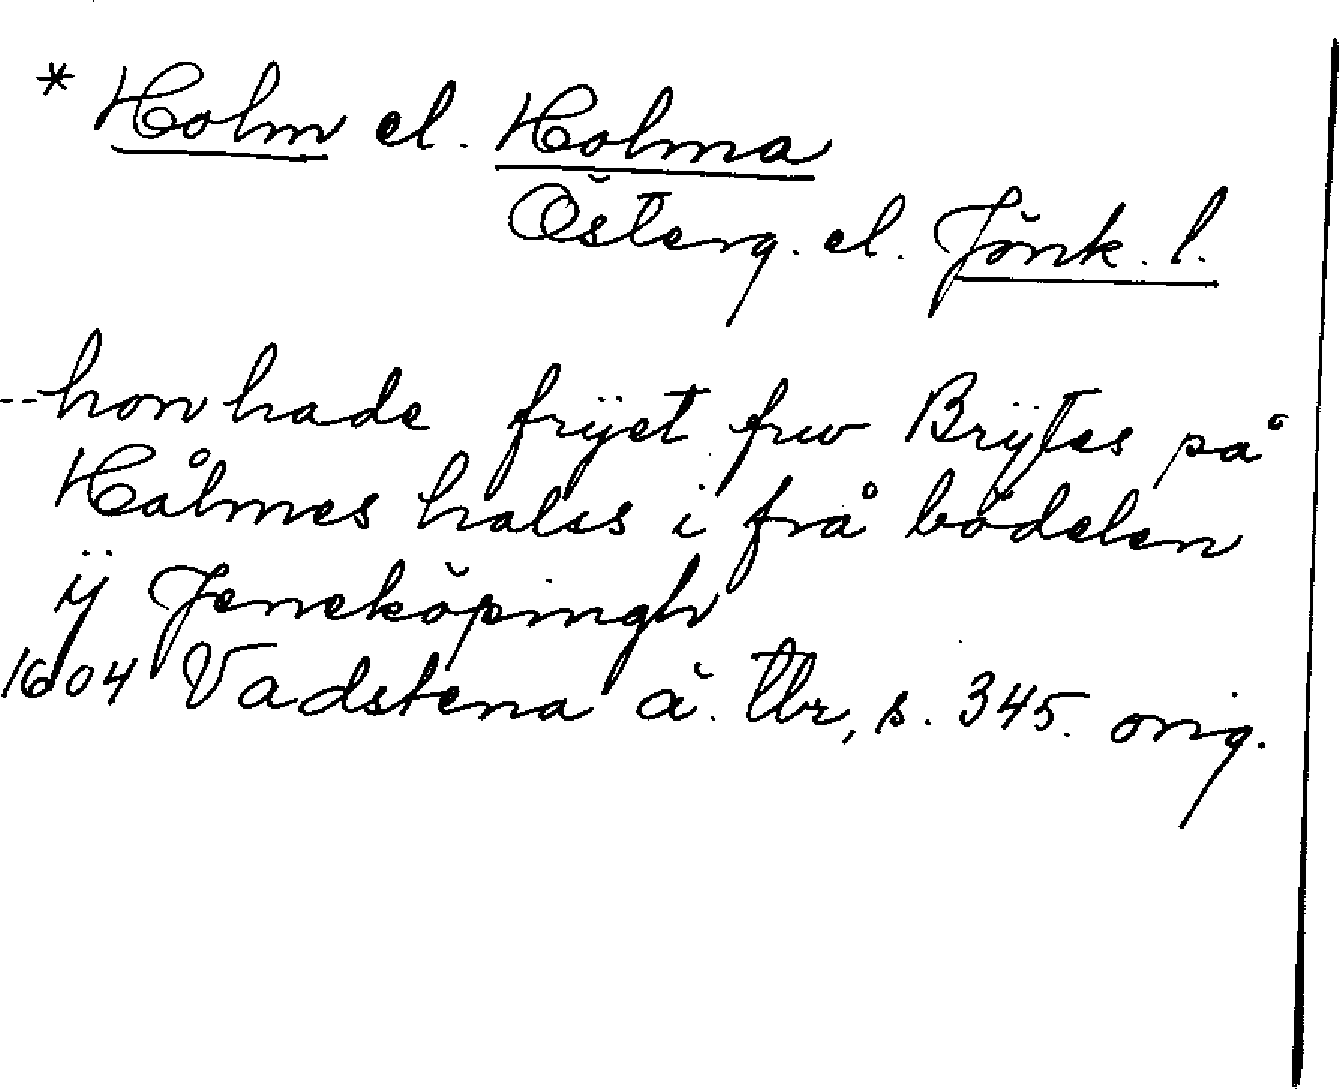 * Holm el. Holma
Österg. el. Jönk. l.
-- hon hade frÿet frw Brÿtes på
Hålmes halss i frå bödelen
ÿ Jeneköpingh
1604 Vadstena ä. tbr, s. 345. orig.